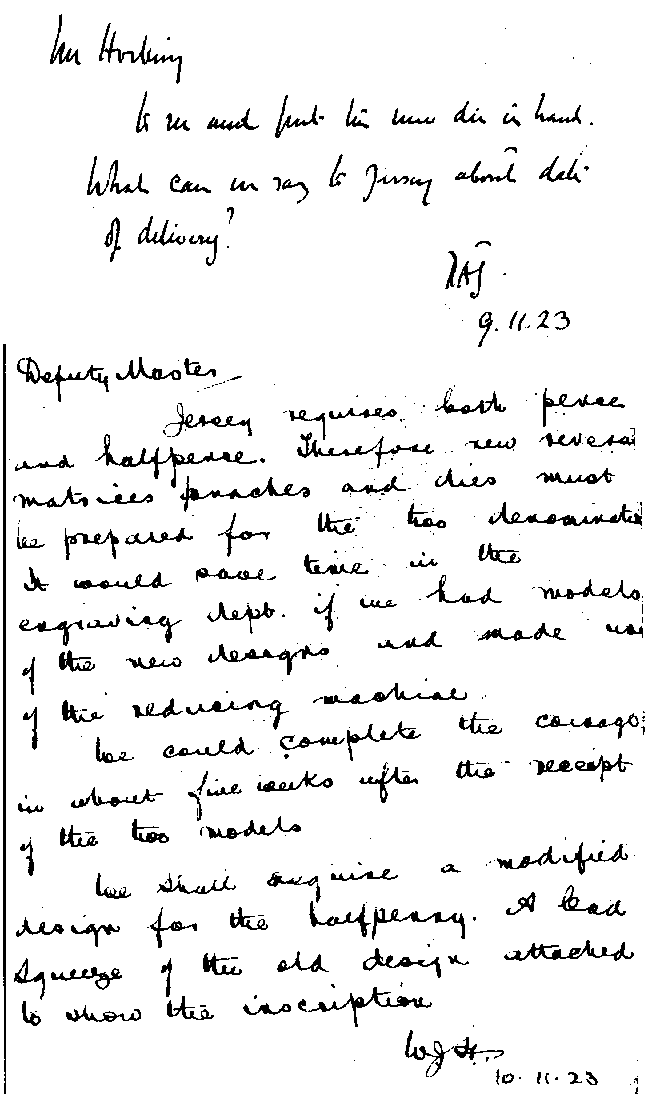 Mr Hocking
to see and put the new die in hand.
What can we say to Jersey about date
of delivery?
9.11.23
Deputy Master
Jersey requires both pence
and halfpence. Therefore new reverse
matrices punches and dies must
be prepared for the two denominatio
It would save time in the
engraving dept. if we had models
of the new designs and made use
of the reducing machine.
We could complete the coinage
in about five weeks after the receipt
of the two models
We shall require a modified
design for the halfpenny. A lead
squeeze of the old design attached
to show the inscription
WJH.
10.11.23